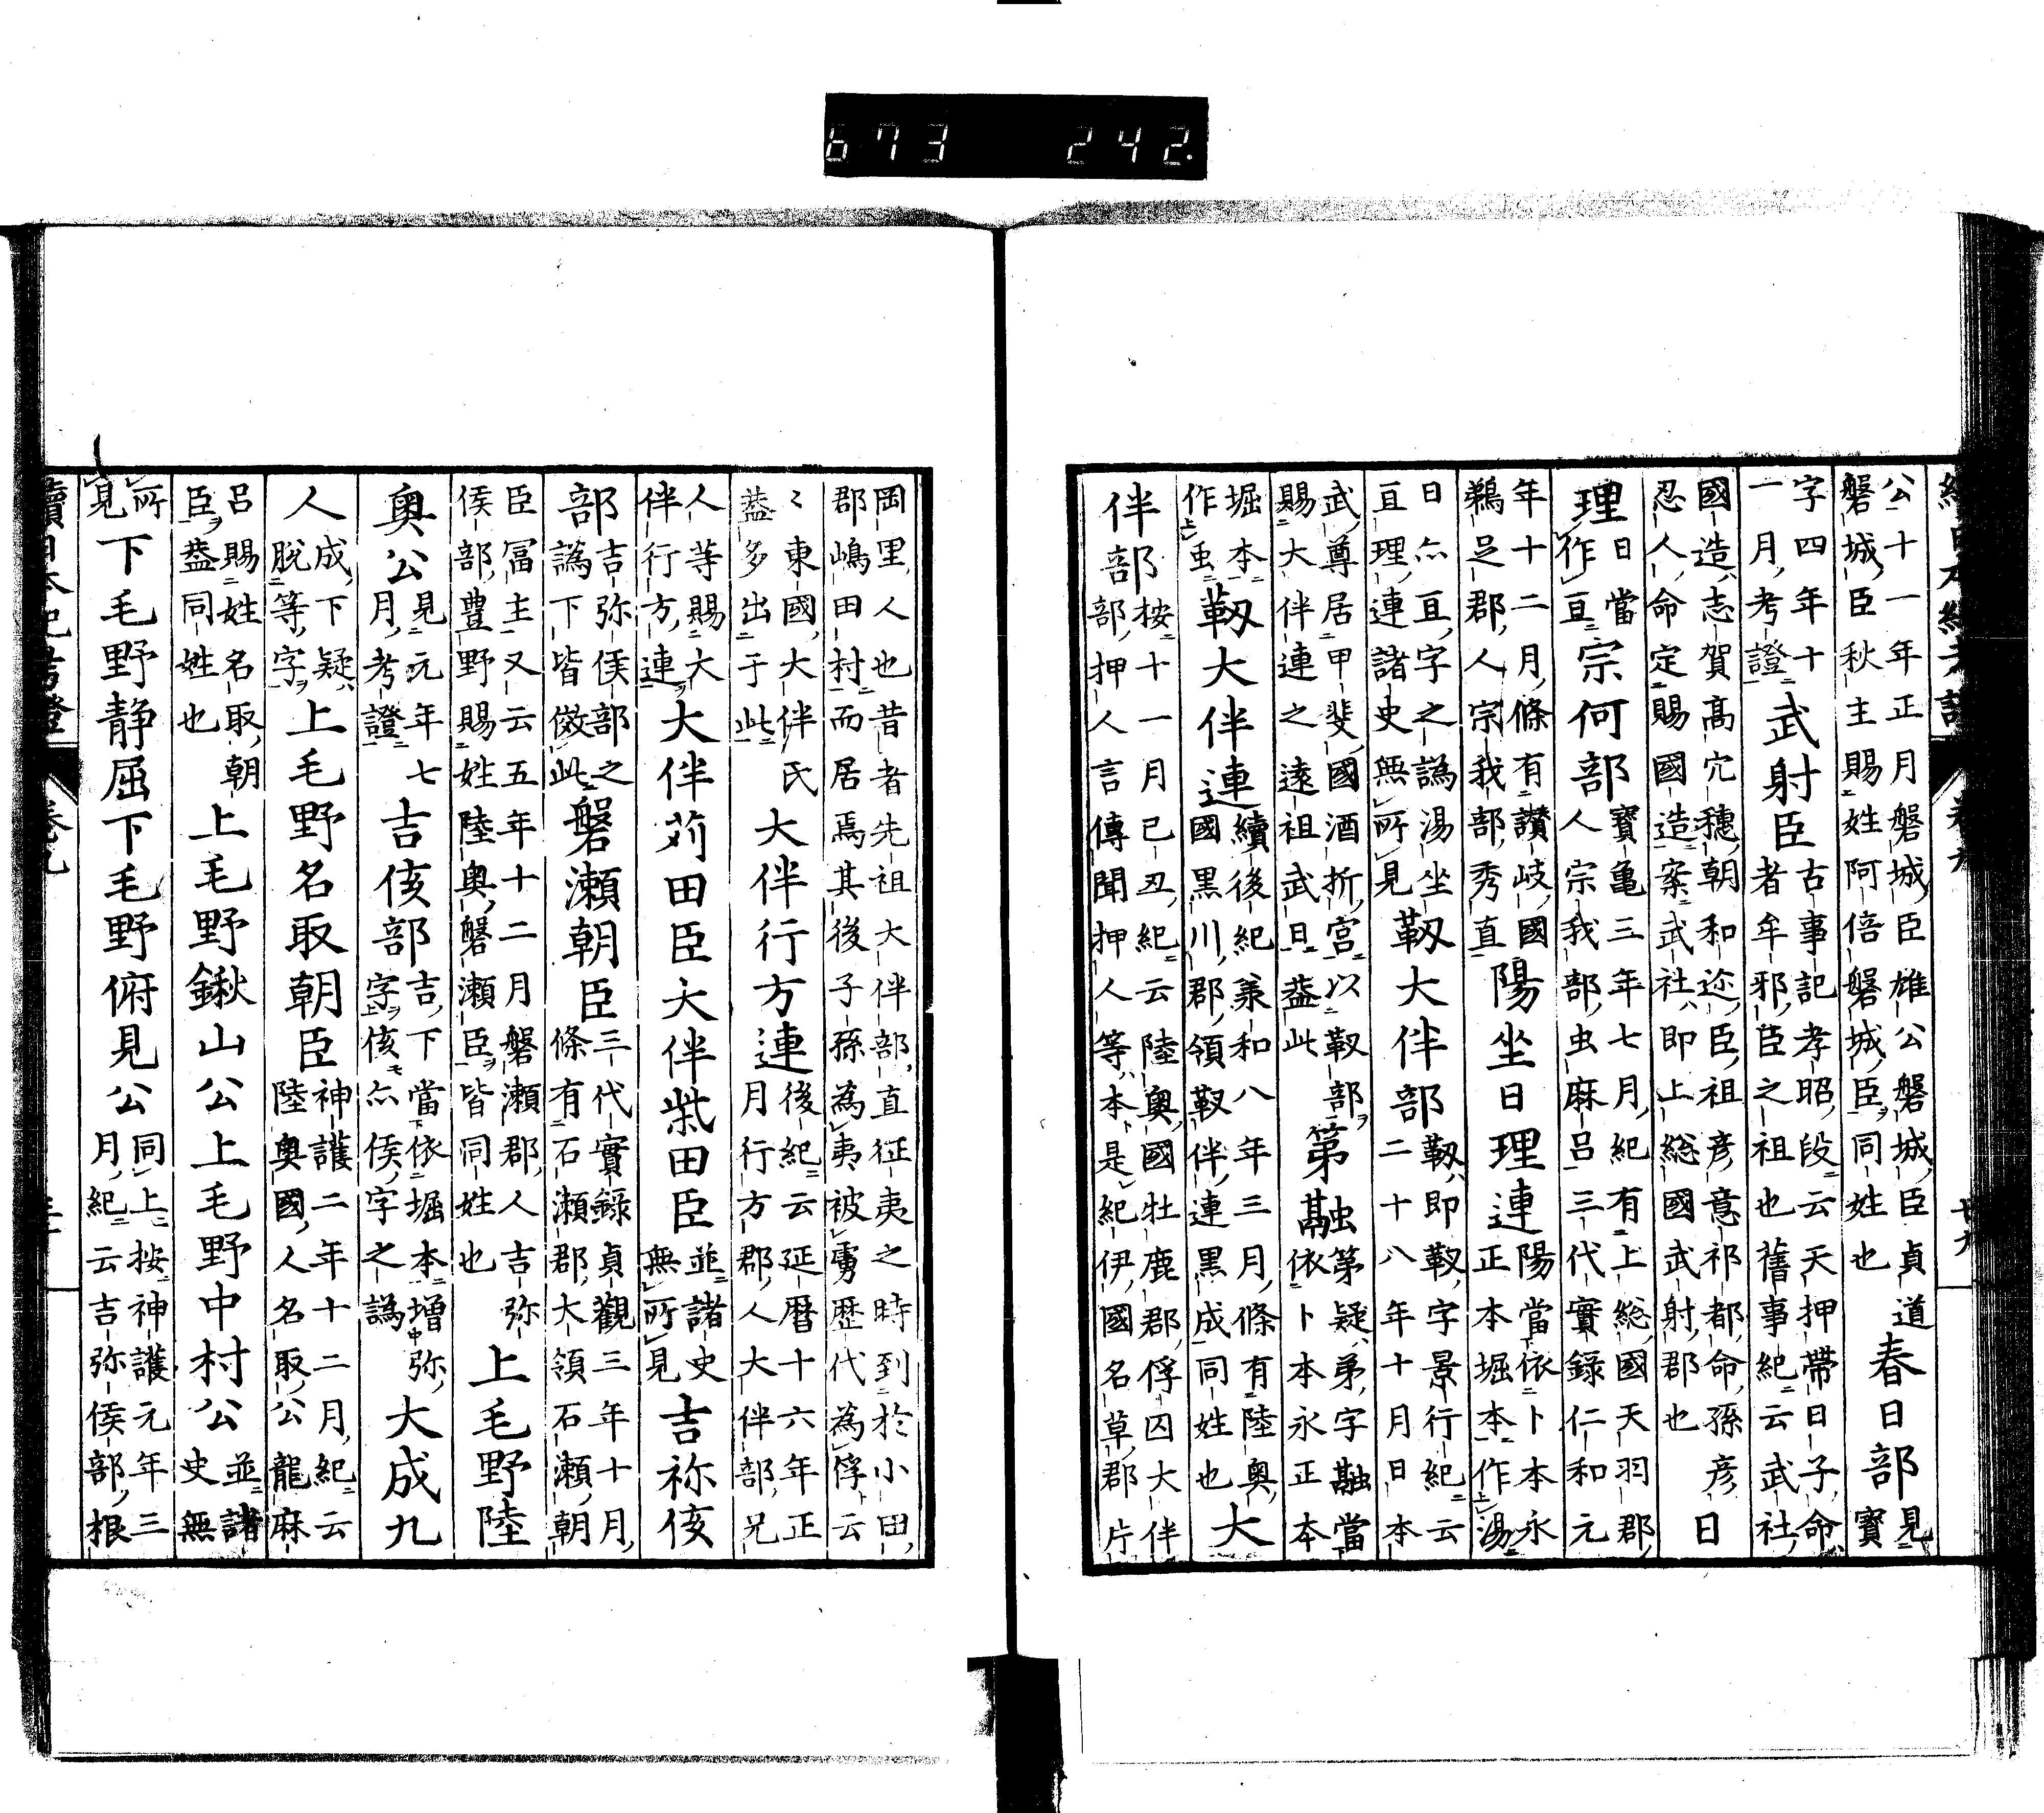 續日本紀考證 卷九 廿九
公十一年正月磐城臣雄公磐城臣貞道磐城臣秋主賜姓阿倍磐城臣同姓也春日部見寶
字四年十一月考證武射臣古事記孝昭段云天押帶日子命者牟邪臣之祖也舊事紀云武社
國造志賀高穴穗朝和迩臣祖彦意祁都命孫彦忍人命定賜國造案武社即上総國武射郡也日
理日當作亘宗何部寶亀三年七月紀有上総國天羽郡人宗我部虫麻呂三代實録仁和元
年十二月條有讃岐國鵜足郡人宗我部秀直陽坐日理連陽當依卜本永正本堀本作湯
日亦亘字之譌湯坐亘理連諸史無所見靱大伴部靱即靫字景行紀云二十八年十月日本
武尊居甲斐國酒折宮以靫部賜大伴連之遠祖武日葢此第融第疑弟字融當依卜本永正本
堀本作虫靱大伴連續後紀承和八年三月條有陸奥國黒川郡領靫伴連黒成同姓也大
伴部按十一月己丑紀云陸奥國牡鹿郡俘囚大伴部押人言傳聞押人等本是紀伊國名草郡片
岡里人也昔者先祖大伴部直征夷之時到於小田郡嶋田村而居焉其後子孫為夷被虜歴代為俘云
〻東國大伴氏葢多出于此大伴行方連後紀云延暦十六年正月行方郡人大伴部兄
人等賜大伴行方連大伴苅田臣大伴柴田臣並諸史無所見吉祢侅
部吉弥侯部之譌下皆倣此磐瀬朝臣三代實録貞觀三年十月條有石瀬郡大領石瀬朝
臣冨主又云五年十二月磐瀬郡人吉弥侯部豊野賜姓陸奥磐瀬臣皆同姓也上毛野陸
奥公見元年七月考證吉侅部吉下當依堀本增弥字侅亦侯字之譌大成九
人成下疑脱等字上毛野名取朝臣神護二年十二月紀云陸奥國人名取公龍麻
呂賜姓名取朝臣葢同姓也上毛野鍬山公上毛野中村公並諸史無
所見下毛野静屈下毛野俯見公同上按神護元年三月紀云吉弥侯部根
續日本紀考證 卷九